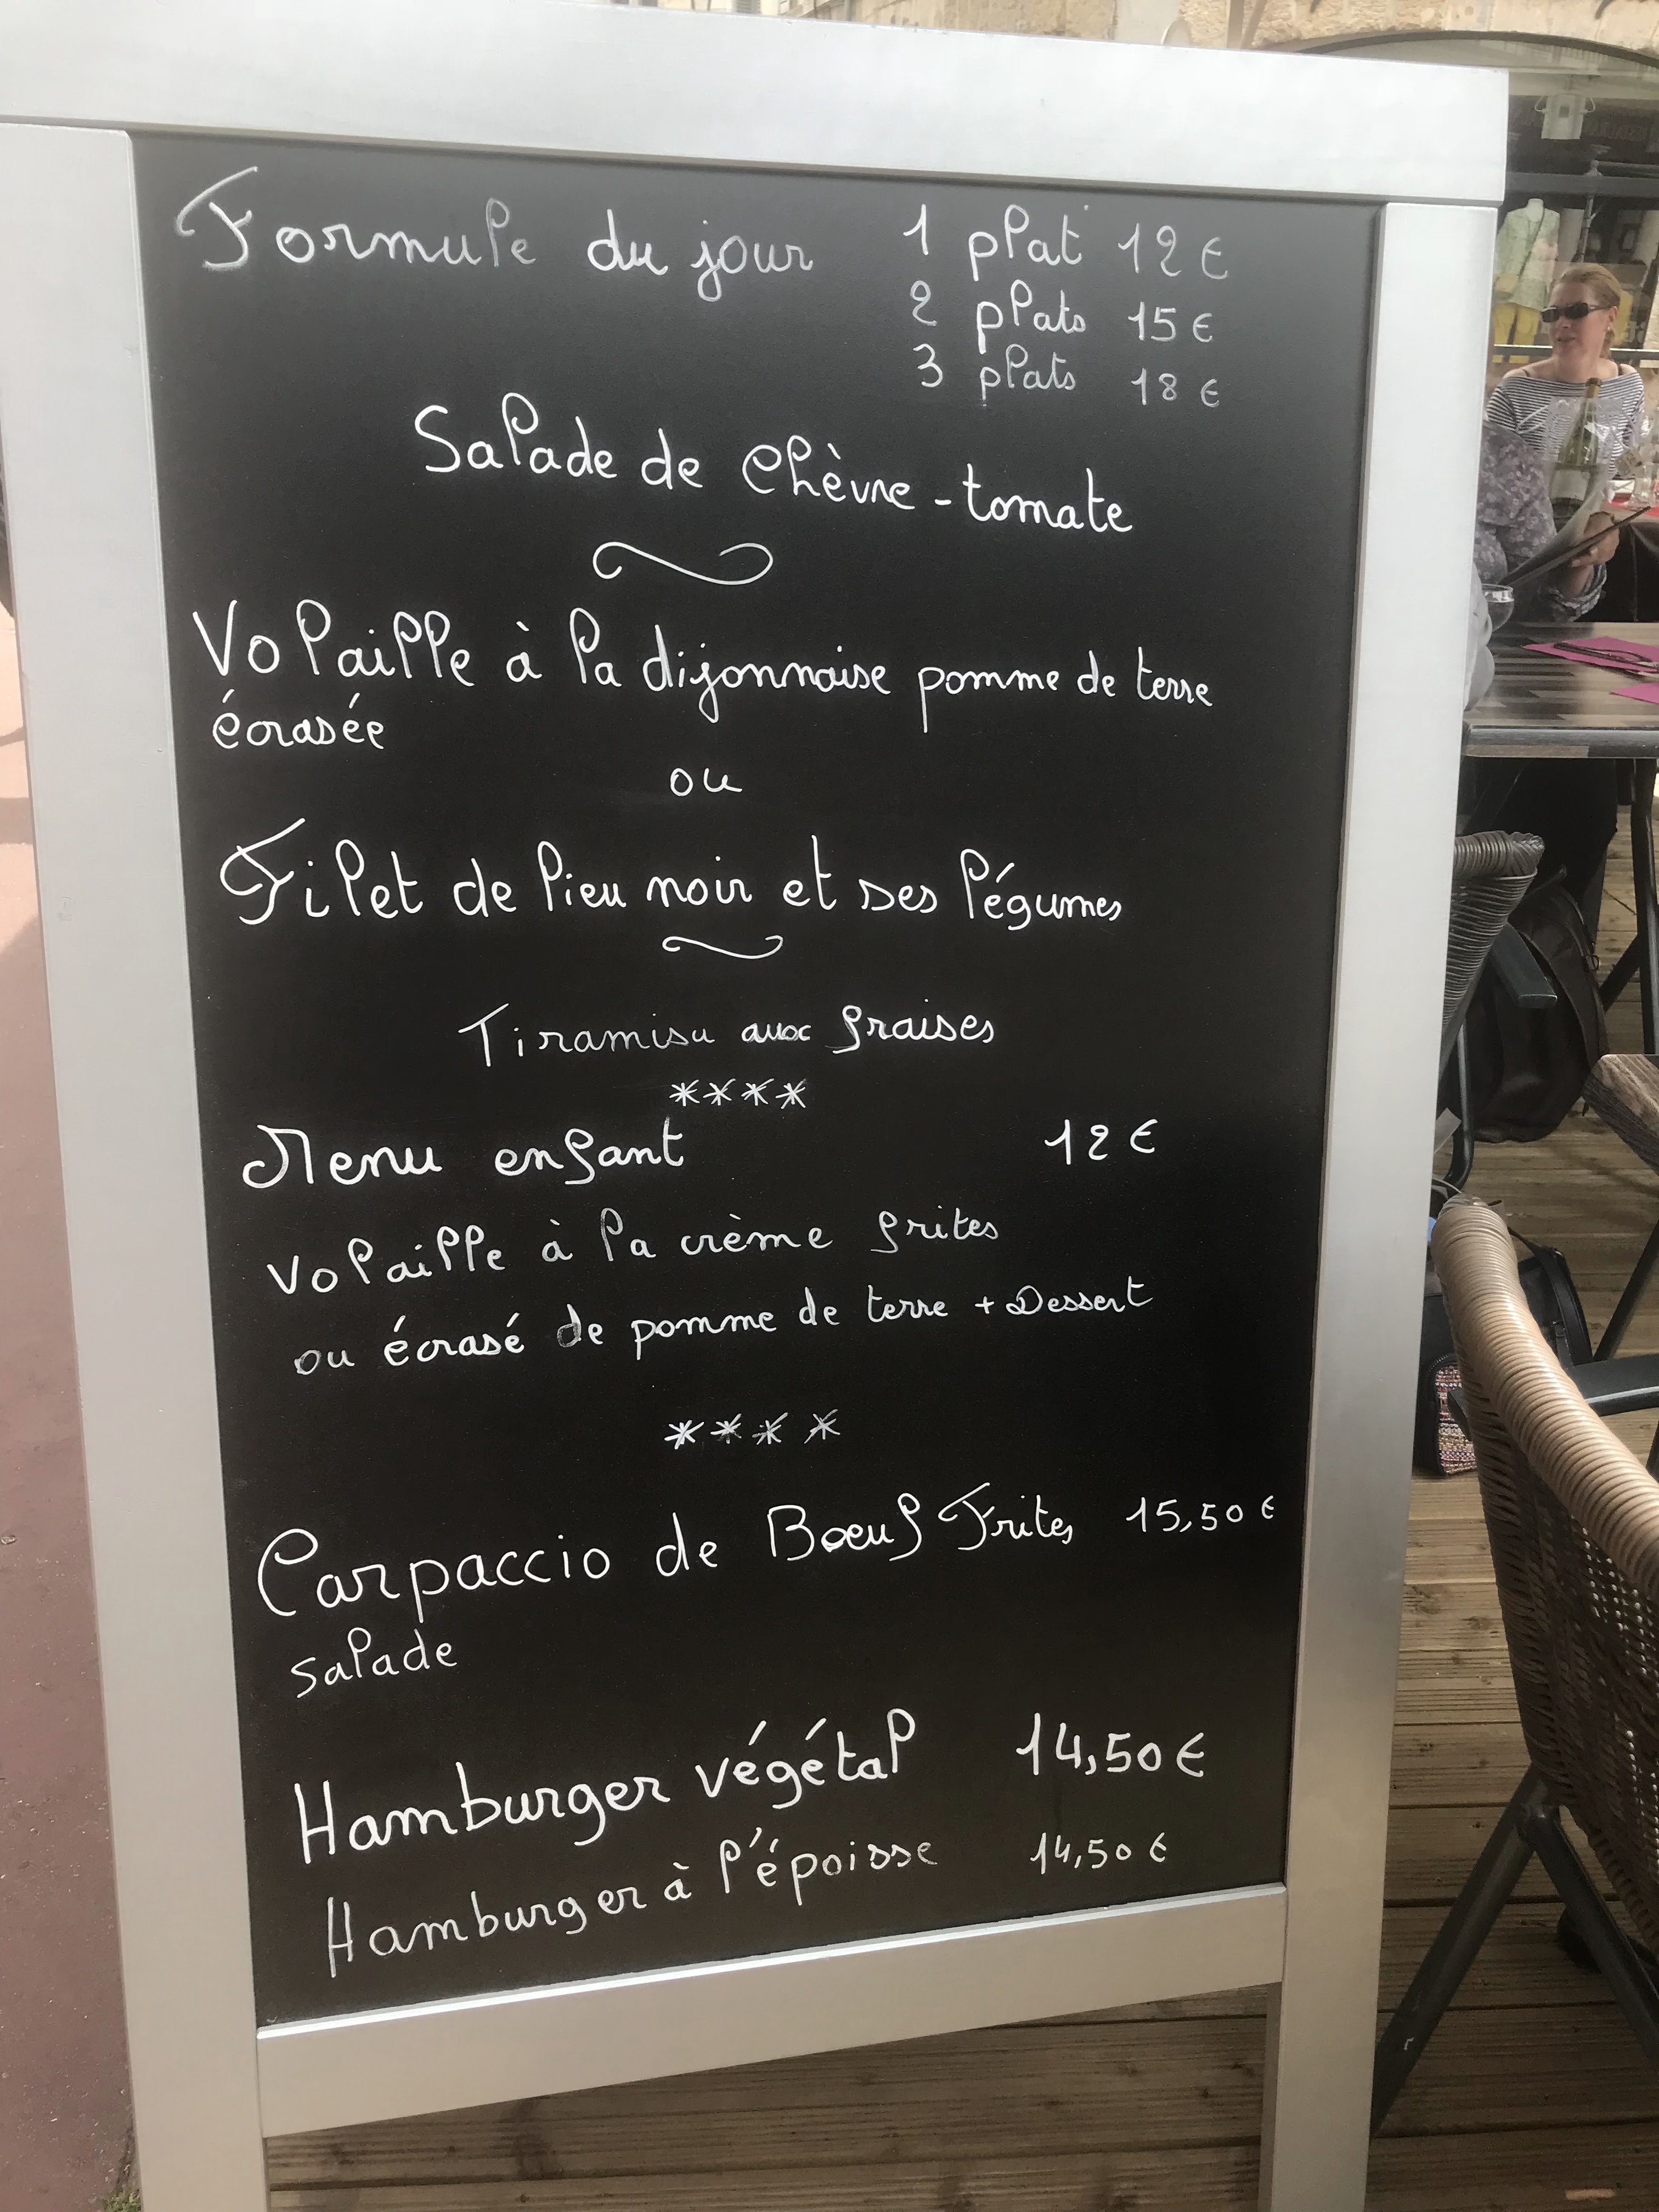 Formule du jour 1 plat 12 €
2 plats 15 €
3 plats 18 €
Salade de Chèvre - tomate
Volaille à la dijonnaise pomme de terre
écrasée
ou
Filet de lieu noir et ses légumes
Tiramisu aux fraises
****
Menu enfant 12 €
Volaille à la crème frites
ou écrasé de pomme de terre + Dessert
****
Carpaccio de Boeuf Frites 15,50 €
salade
Hamburger végétal 14,50 €
Hamburger à l'époisse 14,50 €